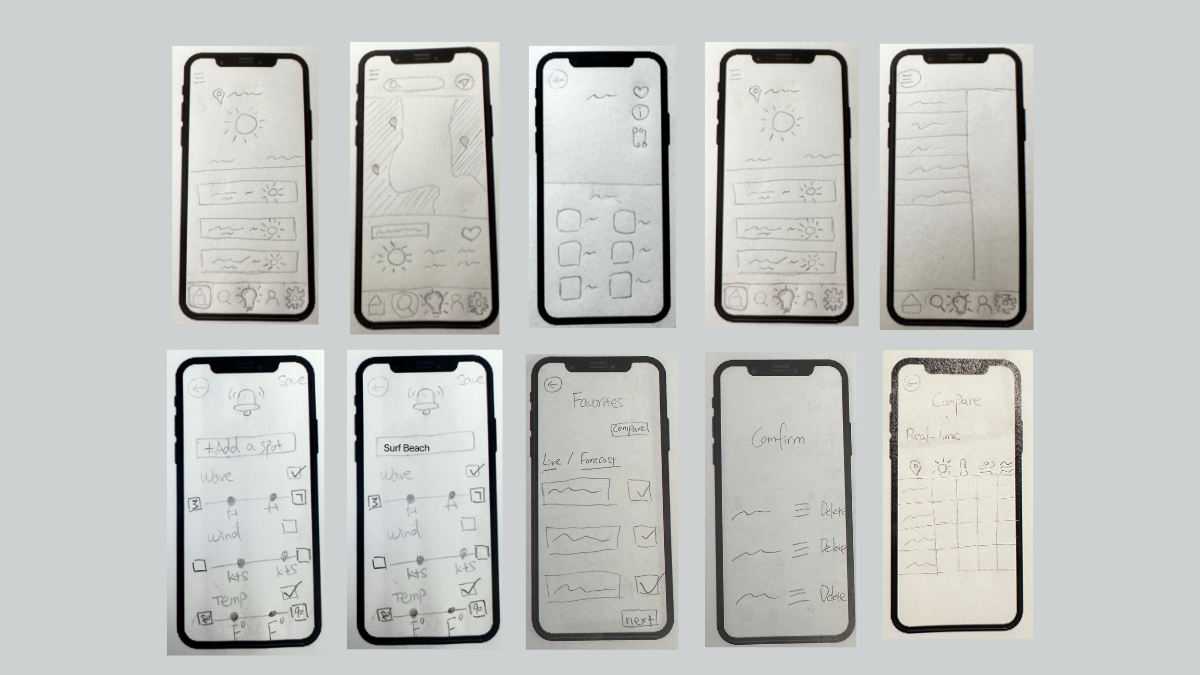 Save
+Add a spot
Wave
3 7
ft ft
Wind
kts kts
Temp
F° F°
Save
Surf Beach
Wave
3 7
ft ft
Wind
kts kts
Temp
F° F°
Favorites
Compare
Live / Forecast
next
Comfirm
Delete
Delete
Delete
Compare
Real-time